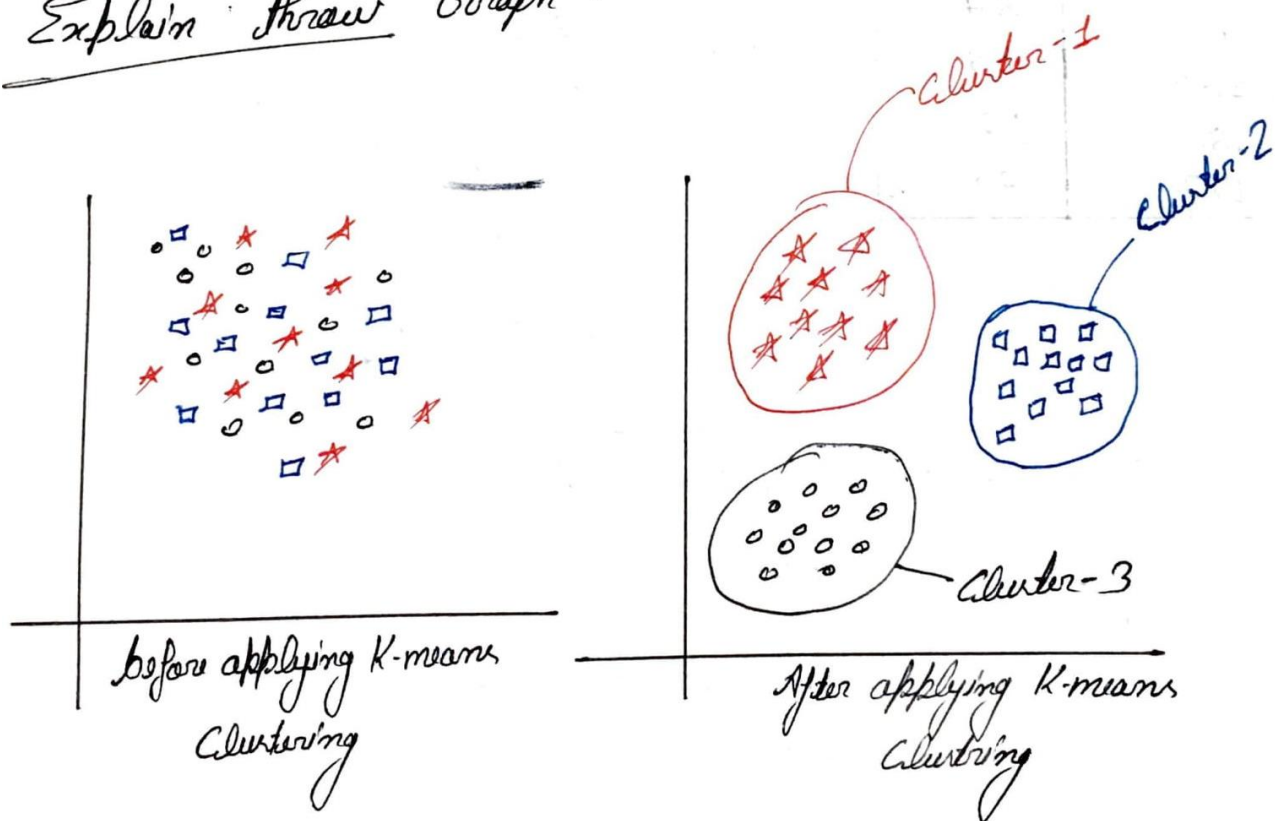 Explain throw Graph
Cluster-1
Cluster-2
Cluster-3
before applying K-means
Clustering
After applying K-means
Clustring